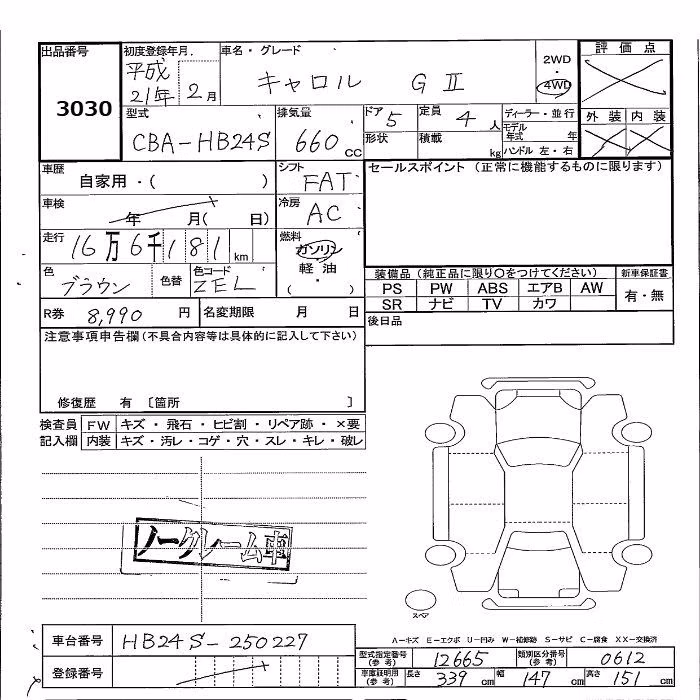 出品番号
3030
初度登録年月
平成
21年 2月
車名・グレード
キャロル GⅡ
2WD
4WD
評価点
外装 内装
型式
CBA-HB24S
排気量
660 cc
ドア 5
形状
定員 4 人
積載 kg
ディーラー・並行
モデル年式 年
ハンドル 左・右
車歴
自家用・( )
シフト
FAT
セールスポイント (正常に機能するものに限ります)
車検
年 月( 日)
冷房
AC
走行
16万6千181km
燃料
ガソリン
軽油
( ・ )
色
ブラウン
色替
色コード
ZEL
装備品 (純正品に限り○をつけてください)
新車保証書
PS PW ABS エアB AW
SR ナビ TV カワ
有・無
R券 8,990 円
名変期限 月 日
後日品
注意事項申告欄(不具合内容等は具体的に記入して下さい)
修復歴 有 〔箇所 〕
検査員
記入欄
FW キズ・飛石・ヒビ割・リペア跡・×要
内装 キズ・汚レ・コゲ・穴・スレ・キレ・破レ
ノークレーム車
スペア
A-キズ E-エクボ U-凹み W-補修跡 S-サビ C-腐食 XX-交換済
車台番号 HB24S-250227
登録番号
型式指定番号(参考) 12665
類別区分番号(参考) 0612
車庫証明用(参考) 長さ 339 cm 幅 147 cm 高さ 151 cm